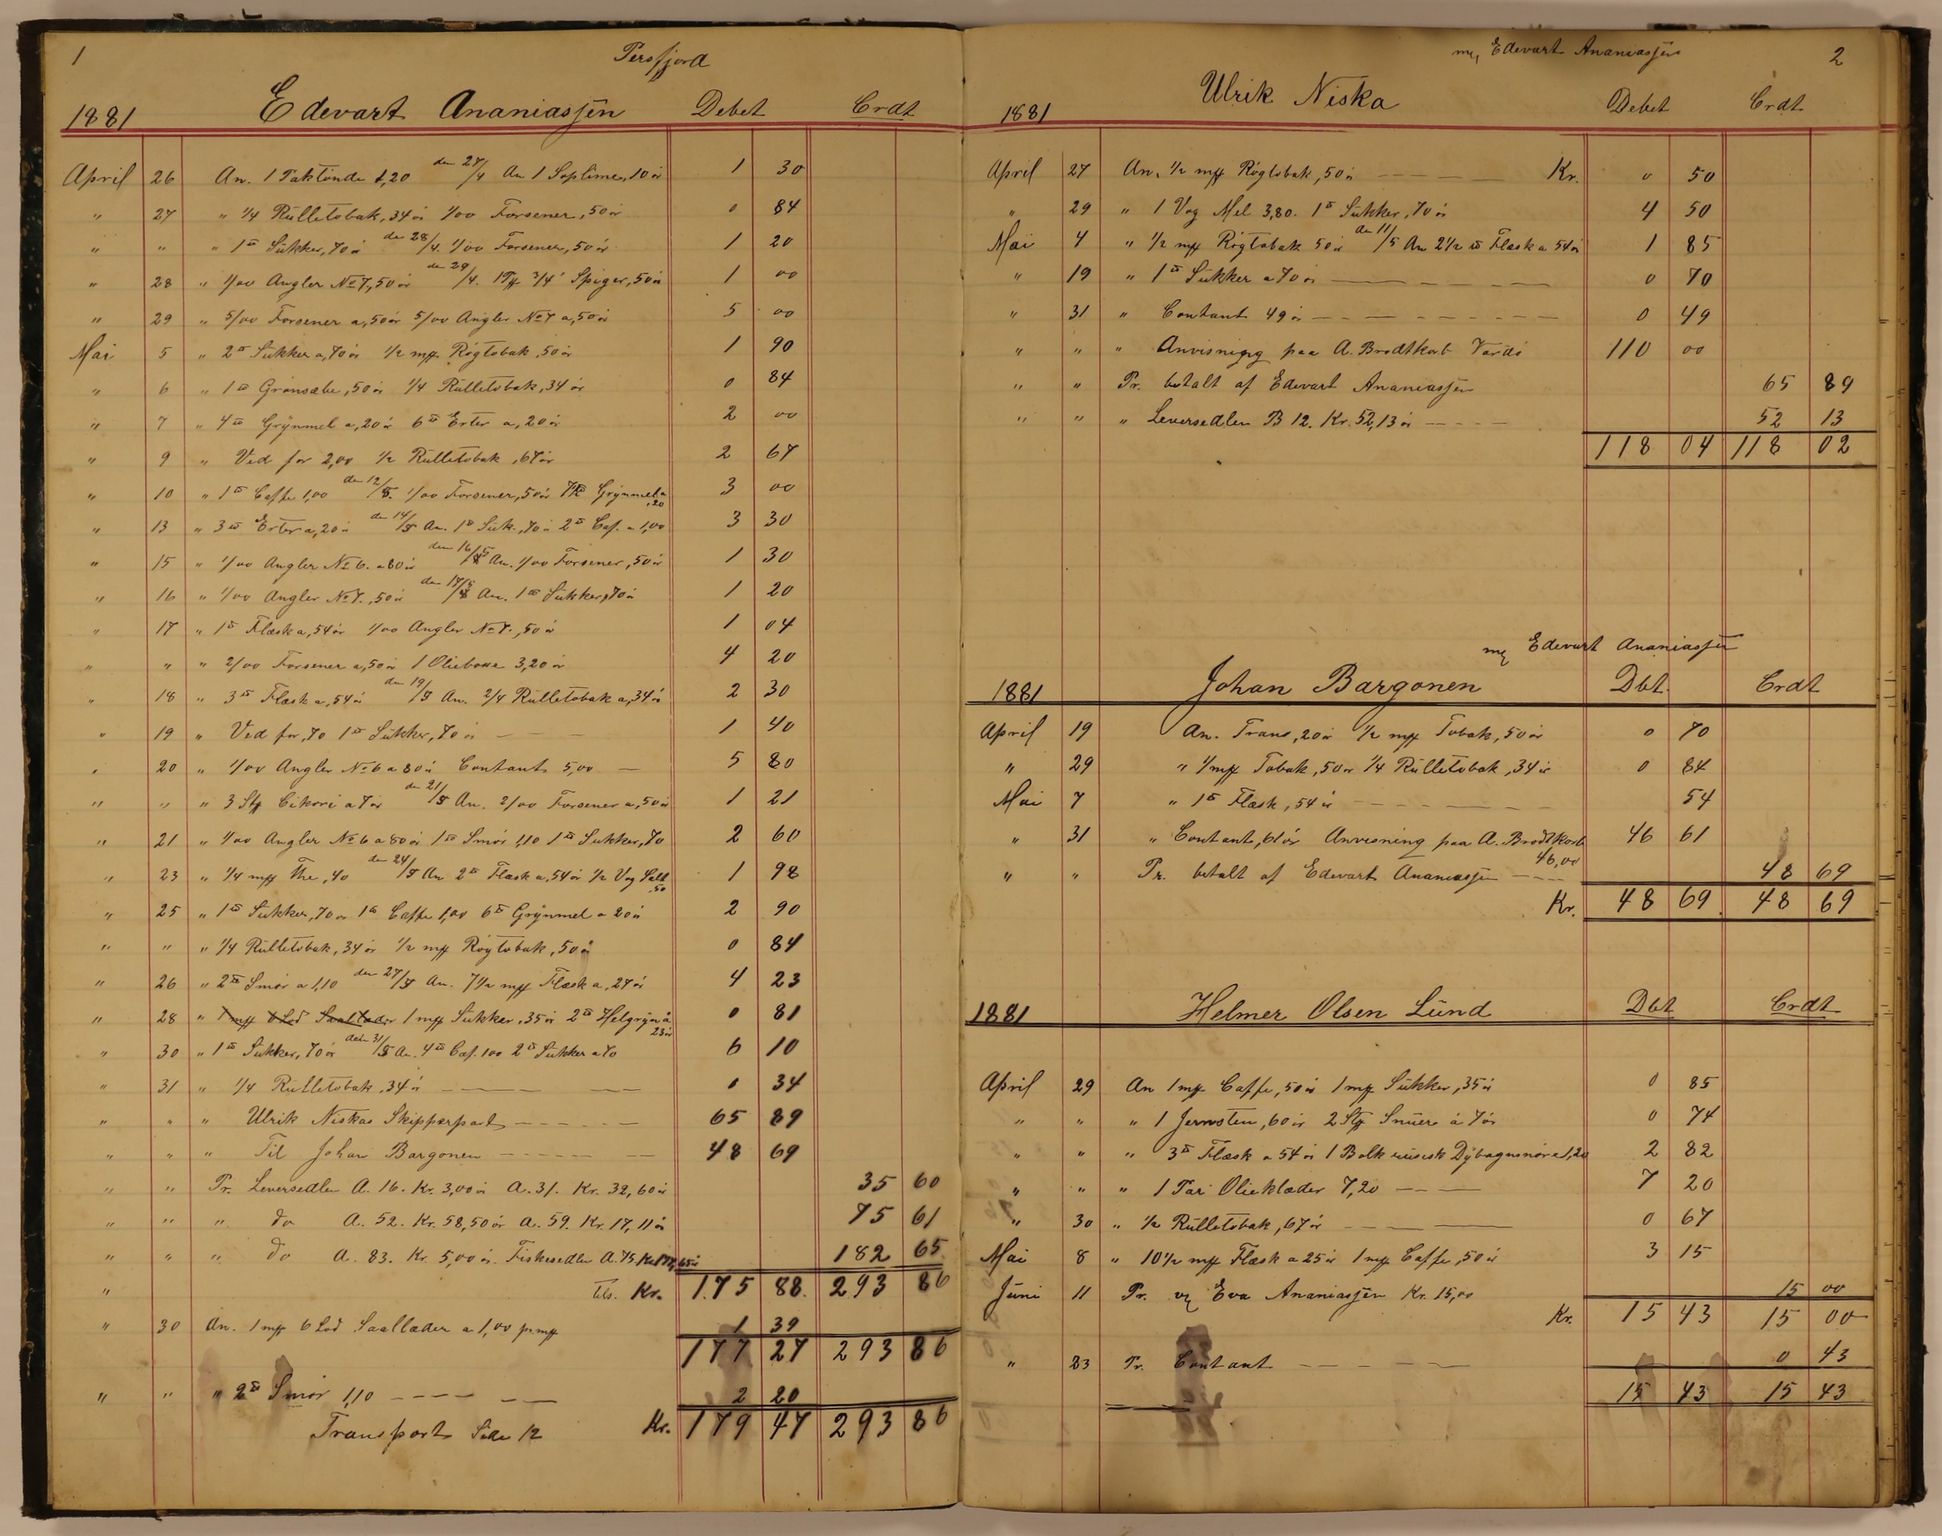 1
Persfjord
1881 Edevart Ananiassen Debet Crdt
April 26 An. 1 Taktönde 1,20 den 27/4 An 1 10 ör 1 30
" 27 " 1/4 Rulletobak, 34 ör 1/00 Forsener, 50 ör 0 84
" " " 1 ℔ Sukker, 70 ör den 28/4. 1/00 Forsener, 50 ör 1 20
" 28 " 1/00 Angler No 7, 50 ör den 29/4. 3/4" Spiger, 50 ör 1 00
" 29 " 5/00 Forsener a, 50 ör 5/00 Angler No 7 a, 50 ör 5 00
Mai 5 " 2 ℔ Sukker a, 70 ör 1/2 mrk Rögtobak, 50 ör 1 90
" 6 " 1 ℔ Grönsæbe, 50 ör 1/4 Rulletobak, 34 ör 0 84
" 7 " 4 ℔ Grynmel a, 20 ör 6 ℔ Erter a, 20 ör 2 00
" 9 " Ved for 2,00 1/2 Rulletobak, 67 ör 2 67
" 10 " 1 ℔ Caffe 1,00 den 12/5. 1/00 Forsener, 50 ör Grynmel a ,20 3 00
" 13 " 3 ℔ Erter a, 20 ör den 14/5 An. 1 ℔ Suk., 70 ör 2 ℔ Caf. a 1,00 3 30
" 15 " 1/00 Angler No 6. a 80 ör den 16/5 An. 1/00 Forsener, 50 ör 1 30
" 16 " 1/00 Angler No 7., 50 ör den 17/5 An. 1 ℔ Sukker, 70 ör 1 20
" 17 " 1 ℔ Flæsk a, 54 ör 1/00 Angler No 7., 50 ör 1 04
" " " 2/00 Forsener a, 50 ör 1 Olieboxe 3,20 ör 4 20
" 18 " 3 ℔ Flæsk a, 54 ör den 19/5 An. 2/4 Rulletobak a, 34 ör 2 30
" 19 " Ved for, 70 1 ℔ Sukker, 70 ör 1 40
" 20 " 1/00 Angler No 6 a 80 ör Contant 5,00 5 80
" " " 3 Stk Cikori a 7 ör den 21/5 An. 2/00 Forsener a, 50 ör 1 21
" 21 " 1/00 Angler No 6 a 80 ör 1 ℔ Smör 1,10 1 ℔ Sukker, 70 2 60
" 23 " 1/4 mrk The, 40 den 24/5 An 2 ℔ Flæsk a, 54 ör 1/2 Vog Salt ,50 1 98
" 25 " 1 ℔ Sukker, 70 ör 1 ℔ Caffe 1,00 6 ℔ Grynmel a 20 ör 2 90
" " " 1/4 Rulletobak, 34 ör 1/2 mrk Rögtobak, 50 ör 0 84
" 26 " 2 ℔ Smör a 1,10 den 27/5 An. 7 1/2 mrk Flæsk a, 27 ör 4 23
" 28 " 1 mrk 6 Lod Saallæder 1 mrk Sukker, 35 ör 2 ℔ Helgryn à 23 ör 0 81
" 30 " 1 ℔ Sukker, 70 ör den 31/5 An. 4 ℔ Caf. 1 00 2 ℔ Sukker a 70 6 10
" 31 " 1/4 Rulletobak, 34 ör 0 34
" " " Ulrik Niskas Skipperpart 65 89
" " " Til Johan Bargonen 48 69
" " Pr. Leversedlen A. 16. Kr. 3,00 ör A. 31. Kr. 32,60 ör 35 60
" " " do A. 52. Kr. 58,50 ör A. 59. Kr. 17,11 ör 75 61
" " " do A. 83. Kr. 5,00 ör. Fiskesedlen A. 75. Kr. 177,65 ör 182 65
" Tils. Kr. 175 88. 293 86
" 30 An. 1 mrk 6 Lod Saallæder a 1,00 pr mrk 1 39
177 27 293 86
" " " 2 ℔ Smör 1,10 2 20
Transport Side 12 Kr. 179 47 293 86
m/ Edevart Ananiassen 2
1881 Ulrik Niska Debet Crdt
April 27 An. 1/2 mrk Rögtobak, 50 ör Kr. 0 50
" 29 " 1 Vog Mel 3,80. 1 ℔ Sukker, 70 ör 4 50
Mai 4 " 1/2 mrk Rögtobak 50 ör den 11/5 An 2 1/2 ℔ Flæsk a 54 ör 1 85
" 19 " 1 ℔ Sukker a 70 ör 0 70
" 31 " Contant 49 ör 0 49
" " " Anvisning paa A. Brodtkorb Vardö 110 00
" " Pr. betalt af Edevart Ananiassen 65 89
" " " Leversedlen B 12. Kr. 52,13 ör 52 13
118 04 118 02
m/ Edevart Ananiassen
1881 Johan Bargonen Dbt. Crdt
April 19 An. Tran, 20 ör 1/2 mrk Tobak, 50 ör 0 70
" 29 " 1 mrk Tobak, 50 ör 1/4 Rulletobak, 34 ör 0 84
Mai 7 " 1 ℔ Flæsk, 54 ör 54
" 31 " Contant, 61 ör Anvisning paa A. Brodtkorb 46,00 46 61
" " Pr. betalt af Edevart Ananiassen 48 69
Kr. 48 69 48 69
1881 Helmer Olsen Lund Dbt Crdt
April 29 An 1 mrk Caffe, 50 ör 1 mrk Sukker, 35 ör 0 85
" " " 1 Jernsten, 60 ör 2 Stk Snuer á 7 ör 0 74
" " " 3 ℔ Flæsk a 54 ör 1 Bolk russisk Dybagnsnör a 1,20 2 82
" " " 1 Par Olieklæder 7,20 7 20
" 30 " 1/2 Rulletobak, 67 ör 0 67
Mai 8 " 10 1/2 mrk Flæsk a 25 ör 1 mrk Caffe, 50 ör 3 15
Juni 11 Pr. v/ Eva Ananiassen Kr. 15,00 15 00
Kr. 15 43 15 00
" 23 Pr. Contant 0 43
15 43 15 43